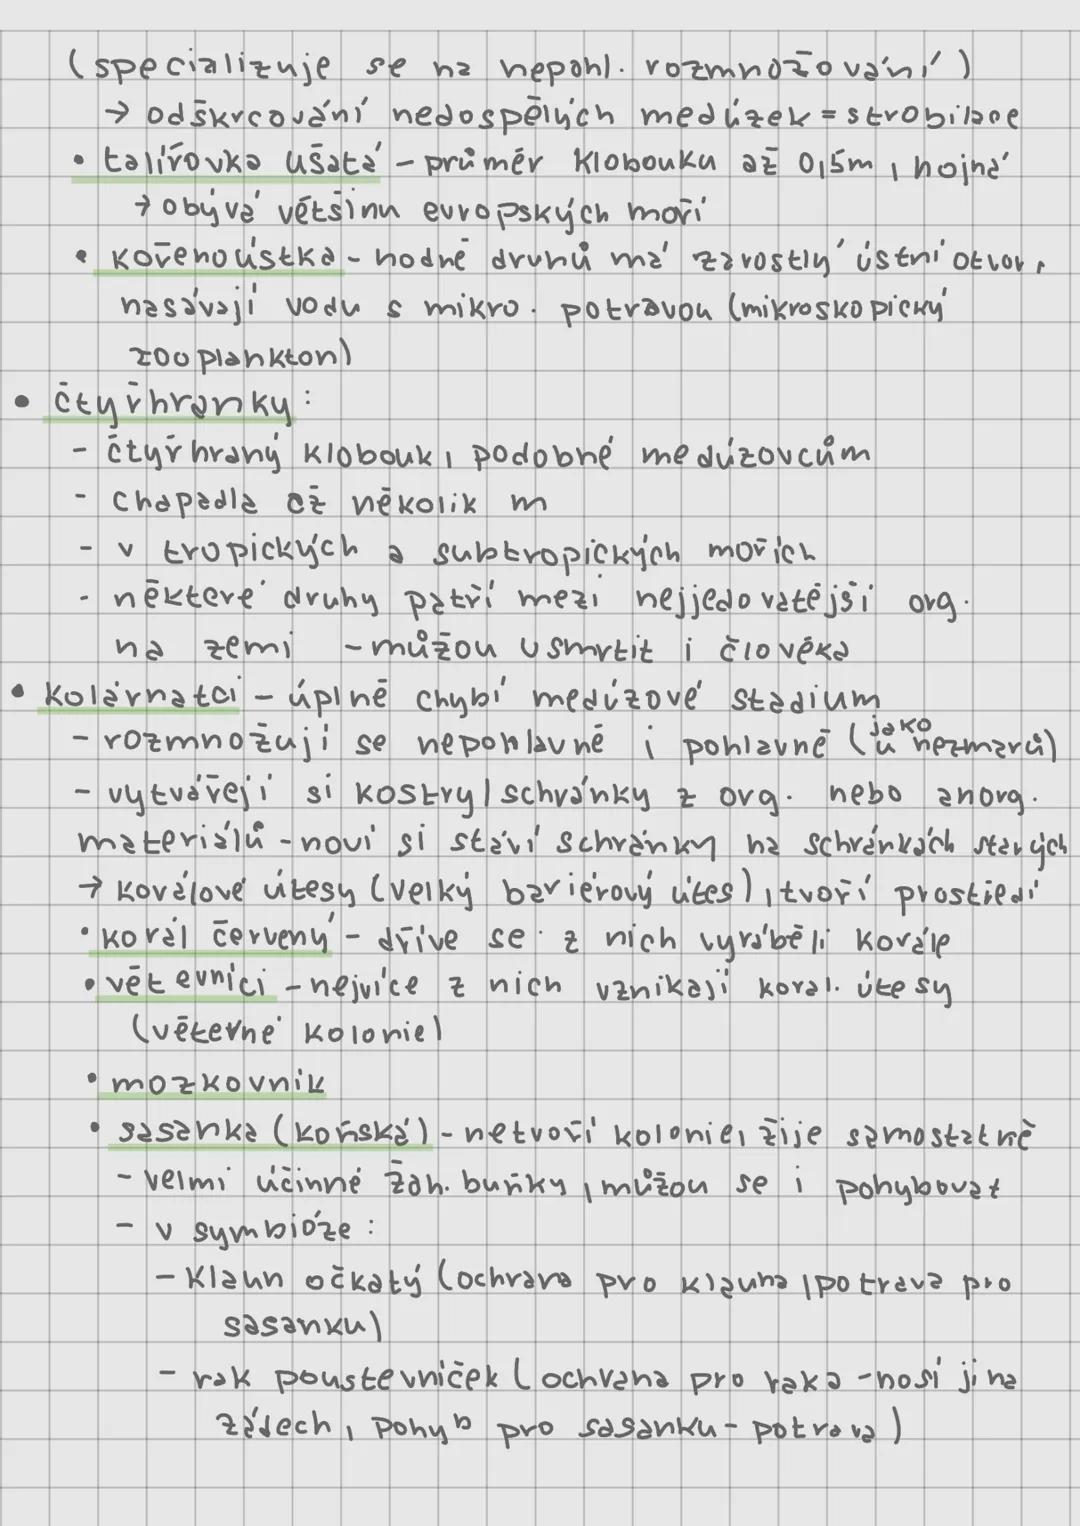 (specializuje se na nepohl. rozmnožování)
→ odškrcování nedospělých medúzek = strobilace
• talířovka ušatá - průměr klobouku až 0,5m, hojná
→ obývá většinu evropských moří
• kořenoústka - hodně druhů má zarostlý ústní otvor,
nasávají vodu s mikro. potravou (mikroskopický
zooplankton)
• čtyřhranky:
- čtyřhraný klobouk, podobné medúzovcům
- chapadla až několik m
- v tropických a subtropických mořích
- některé druhy patří mezi nejjedovatější org.
na zemi - můžou usmrtit i člověka
• kolárnatci - úplně chybí medúzové stadium
- rozmnožují se nepohlavně i pohlavně (jako u nezmarů)
- vytvářejí si kostry/schránky z org. nebo anorg.
materiálů - noví si staví schránky na schránkách starých
→ korálové útesy (velký bariérový útes), tvoří prostředí
• korál červený - dříve se z nich vyráběli korále
• větevníci - nejvíce z nich vznikají korál. útesy
(větevné kolonie)
• mozkovnik
• sasanka (koňská) - netvoří kolonie, žije samostatně
- velmi účinné žah. buňky, můžou se i pohybovat
- v symbióze:
- klaun očkatý (ochrana pro klauna, potrava pro
sasanku)
- rak poustevníček (ochrana pro raka - nosí ji na
zádech, pohyb pro sasanku - potrava)